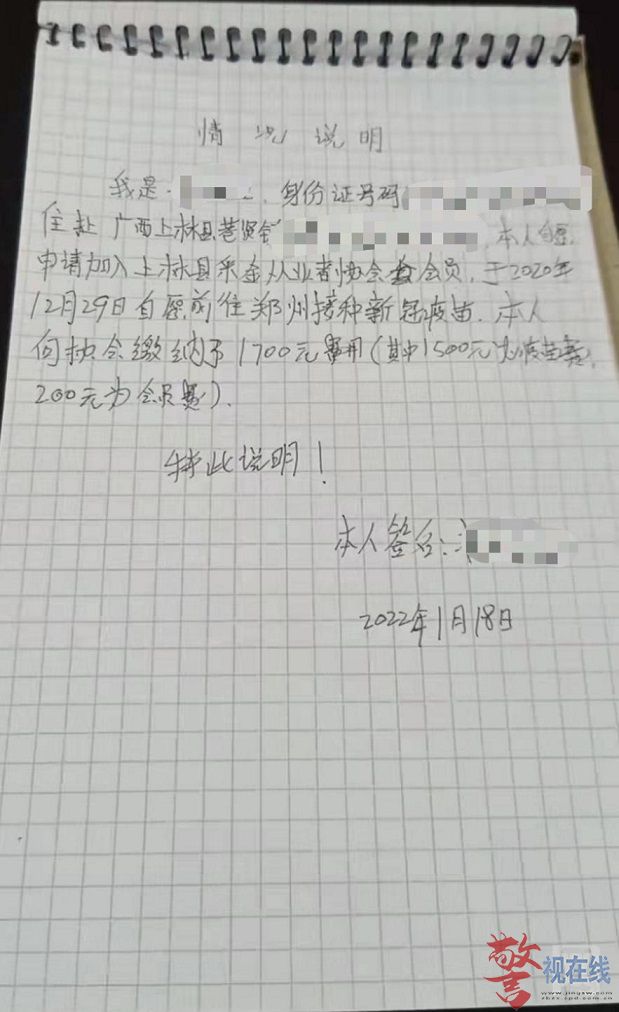 情况说明
我是 身份证号码
住址 广西上林县巷贤镇 本人自愿
申请加入上林县采金从业者协会会员,于2020年
12月29日自愿前往郑州接种新冠疫苗.本人
向协会缴纳了1700元费用(其中1500元为疫苗费,
200元为会员费).
特此说明!
本人签名:
2022年1月18日
警视在线
www.jingsw.com
zbzx.cpd.com.cn